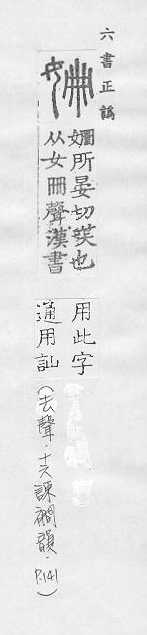 六書正譌
姍所晏切誒也
从女冊聲漢書
用此字
通用訕
(去聲·十六諫襉韻·P.141)